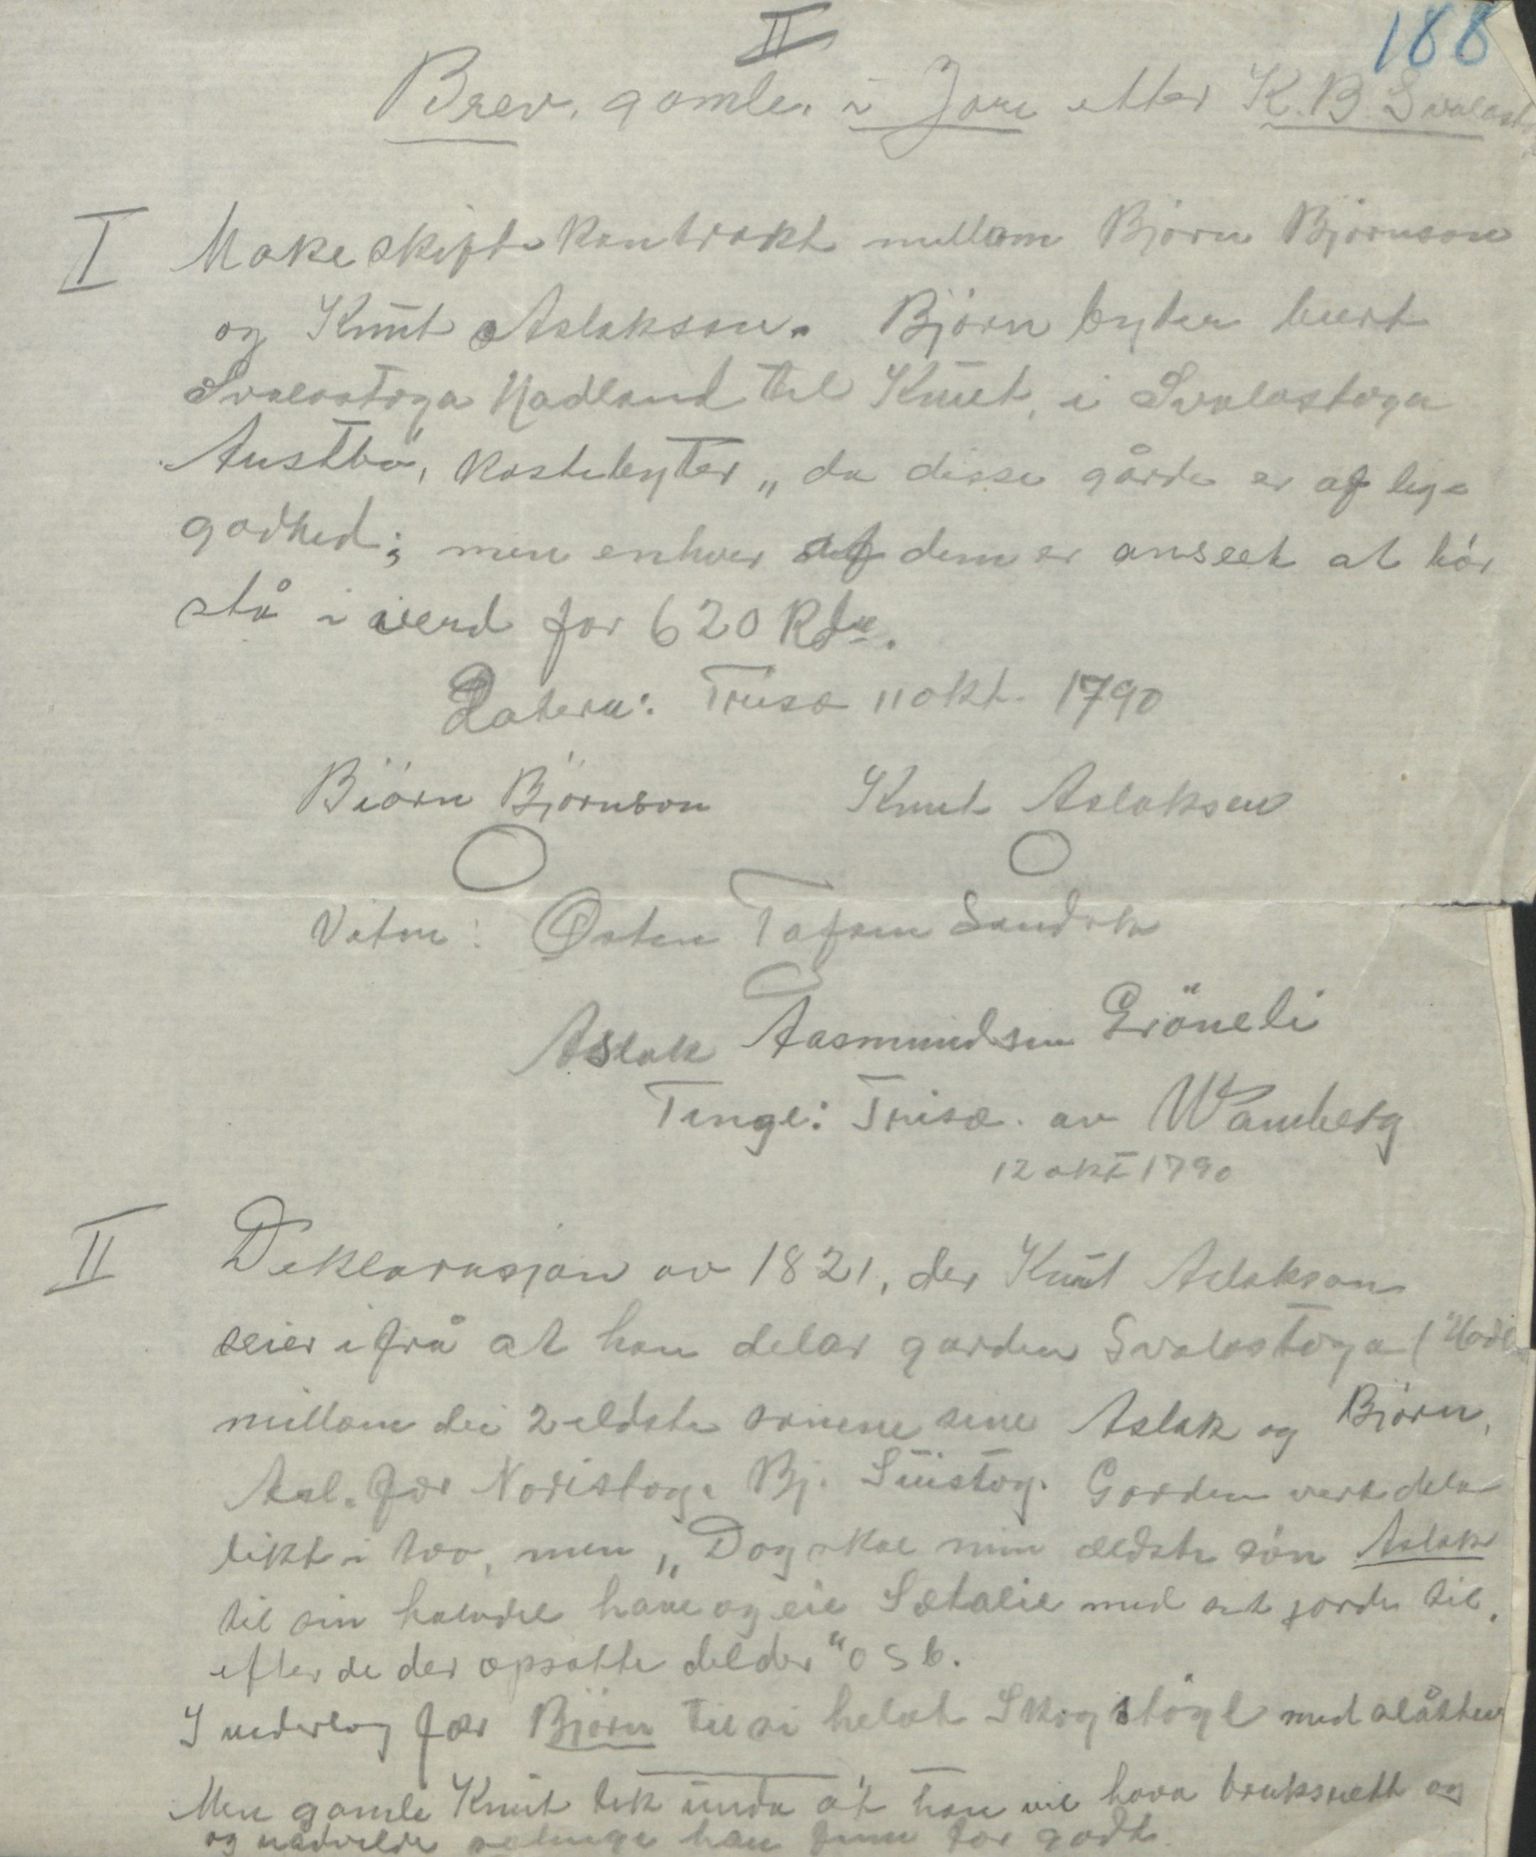 II
188
Brev, gamle, i Jore etter K. B. Svalast
I Makeskifte kontrakt millom Björn Björnson
og Knut Aslakson. Björn byter burt
Svalastoga Hadland til Knut, i Svalastoga
Austbö, kostebyter „da disse gårde er af lige
godhed; men enhver af dem er anseet at bör
stå i verd for 620 Rdlr.
Datera: Triset 11 okt. 1790
Biörn Björnson Knut Aslaksen
Vitne: Østen Tofsen Sandok
Aslak Aasmundsen Gröneli
Tingl: Triset. av Wamberg
12 okt 1790
II Deklarasjon av 1821, der Knut Aslakson
seier ifrå at han delar garden Svalastoga (Hadl
millom dei 2 eldste sönene sine Aslak og Björn.
Asl. fær Noristog. Bj. Suistog. Garden vert dela
likt i tvo, men „Dog skal min ældste sön Aslak
til sin halvdel have og eie Sætalie med alt jorde til,
efter de der opsatte delder" osb.
I vederlag fær Björn til si helvt Skogstögl med slåtten
Men gamle Knut tek unda at han vil hava bruksrett og
og nedvelde so lenge han finn for godt.